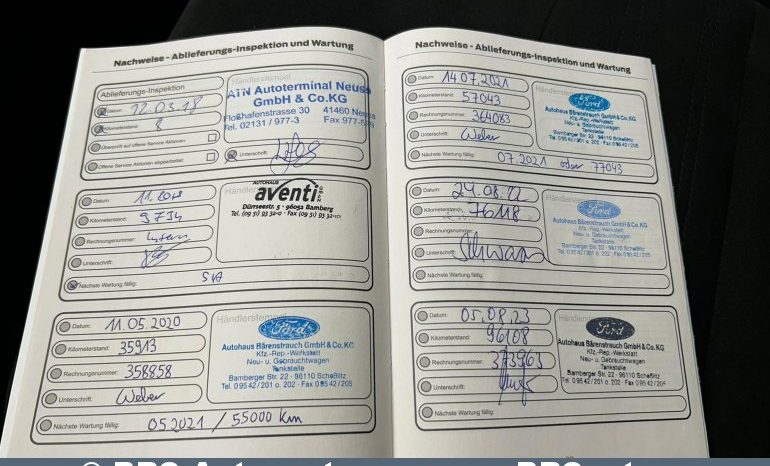 Nachweise - Ablieferungs-Inspektion und Wartung
Ablieferungs-Inspektion
Datum: 12.03.18
Kilometerstand: 8
Überprüft auf offene Service Aktionen
Offene Service Aktionen abgearbeitet:
Händlerstempel
ATN Autoterminal Neuss
GmbH & Co.KG
Floßhafenstrasse 30 41460 Neuss
Tel. 02131 / 977-3 Fax 977-5
Unterschrift:
Datum: 11.2018
Kilometerstand: 9734
Rechnungsnummer: intern
Unterschrift:
Nächste Wartung fällig: SIA
AUTOHAUS
aventi
Dürrseestr. 5 · 96052 Bamberg
Tel. (09 51) 93 32-0 · Fax (09 51) 93 32-
Datum: 11.05.2020
Kilometerstand: 35913
Rechnungsnummer: 358858
Unterschrift: Weber
Nächste Wartung fällig: 05.2021 / 55000 km
Händlerstempel
Ford
Autohaus Bärenstrauch GmbH & Co.KG
Kfz.-Rep.-Werkstatt
Neu- u. Gebrauchtwagen
Tankstelle
Bamberger Str. 22 · 96110 Scheßlitz
Tel. 0 95 42 / 201 o. 202 · Fax 0 95 42 / 205
Nachweise - Ablieferungs-Inspektion und Wartung
Datum: 14.07.2021
Kilometerstand: 57043
Rechnungsnummer: 364083
Unterschrift: Weber
Nächste Wartung fällig: 07.2021 oder 77043
Händlerstempel
Ford
Autohaus Bärenstrauch GmbH & Co.KG
Kfz.-Rep.-Werkstatt
Neu- u. Gebrauchtwagen
Tankstelle
Bamberger Str. 22 · 96110 Scheßlitz
Tel. 0 95 42 / 201 o. 202 · Fax 0 95 42 / 205
Datum: 24.08.22
Kilometerstand: 76118
Rechnungsnummer:
Unterschrift: Schwarz
Nächste Wartung fällig:
Händlerstempel
Ford
Autohaus Bärenstrauch GmbH & Co.KG
Kfz.-Rep.-Werkstatt
Neu- u. Gebrauchtwagen
Tankstelle
Bamberger Str. 22 · 96110 Scheßlitz
Tel. 0 95 42 / 201 o. 202 · Fax 0 95 42 / 205
Datum: 05.08.23
Kilometerstand: 96108
Rechnungsnummer: 373963
Unterschrift:
Nächste Wartung fällig:
Händlerstempel
Ford
Autohaus Bärenstrauch GmbH & Co.KG
Kfz.-Rep.-Werkstatt
Neu- u. Gebrauchtwagen
Tankstelle
Bamberger Str. 22 · 96110 Scheßlitz
Tel. 0 95 42 / 201 o. 202 · Fax 0 95 42 / 205